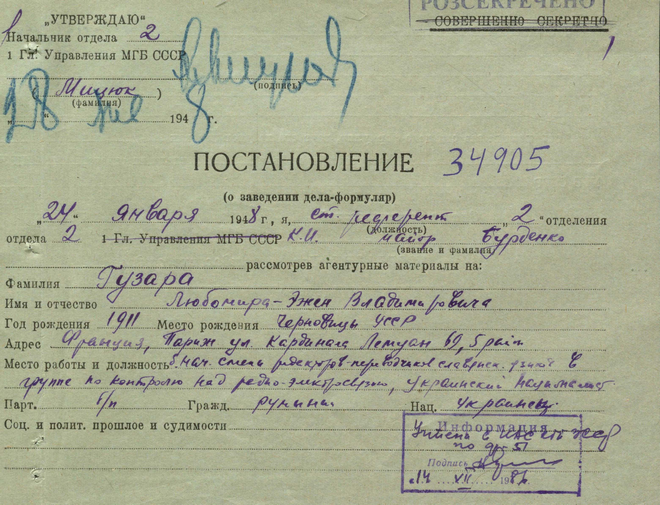 РОЗСЕКРЕЧЕНО
„УТВЕРЖДАЮ"
СОВЕРШЕННО СЕКРЕТНО
Начальник отдела 2
1 Гл. Управления МГБ СССР
1
(подпись)
( Мицюк )
(фамилия)
„28" 1948 г.
ПОСТАНОВЛЕНИЕ 34905
(о заведении дела-формуляр)
„24" января 1948 г., я, ст. референт „2" отделения
(должность)
отдела 2 1 Гл. Управления МГБ СССР К.И. майор Бурденко
(звание и фамилия)
рассмотрев агентурные материалы на:
Фамилия Гузара
Имя и отчество Любомира-Эжен Владимировича
Год рождения 1911 Место рождения Черновицы УССР
Адрес Франция, Париж ул. Кардинала Лемуан 69, 5 район
Место работы и должность б. нач. смены редакторов-переводчиков славянск. языков в
группе по контролю над радио-электросвязью, украинский националист
Парт. б/п Гражд. румыния Нац. украинец
Соц. и полит. прошлое и судимости
Информация
Учтена в
Подпись
„14" XII 198 г.